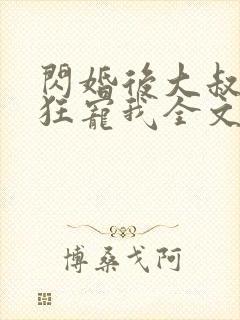 閃婚後大叔
狂寵我全文
博桑戈阿